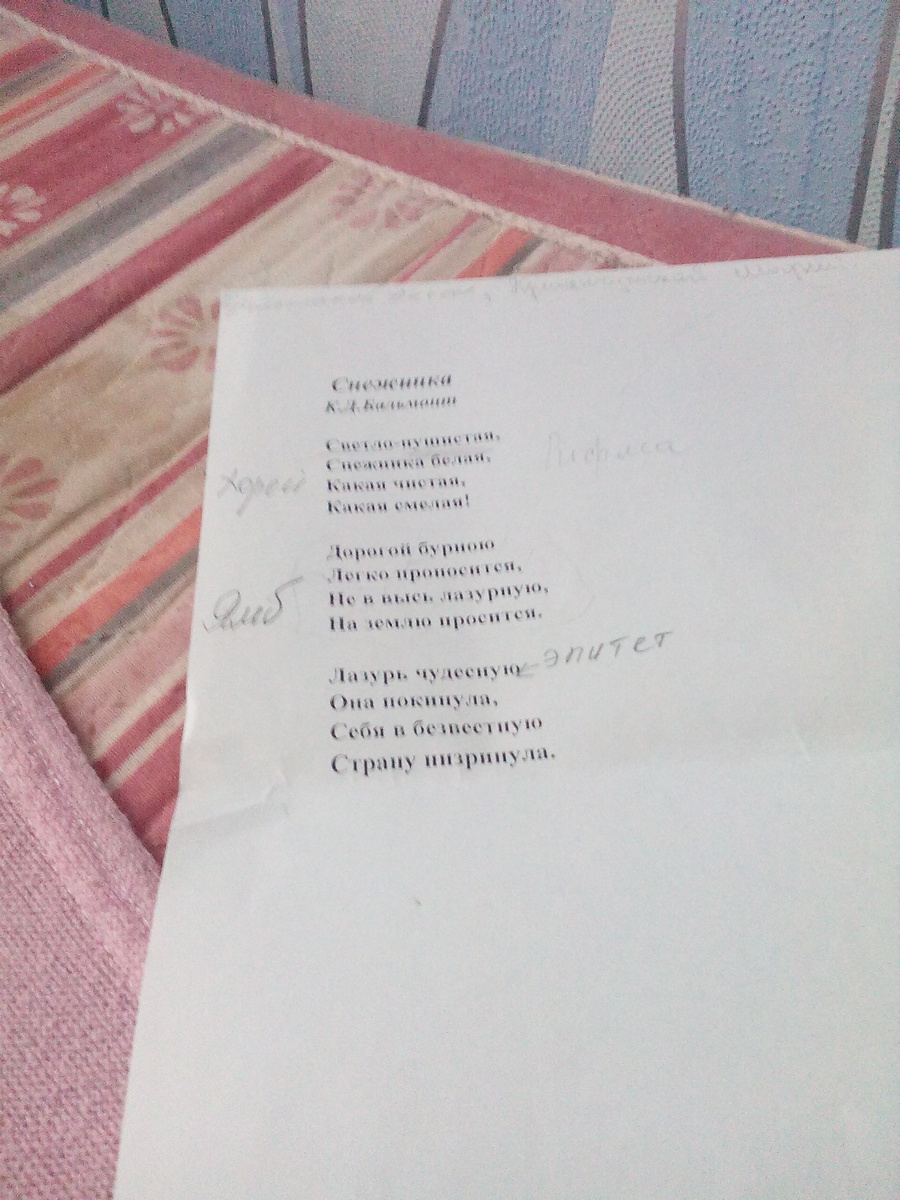 Снежинка
К.Д.Бальмонт
Светло-пушистая,
Снежинка белая,
Рифма
Какая чистая,
Хорей
Какая смелая!
Дорогой бурною
Легко проносится,
Не в высь лазурную,
Ямб
На землю просится.
Лазурь чудесную
эпитет
Она покинула,
Себя в безвестную
Страну низринула.